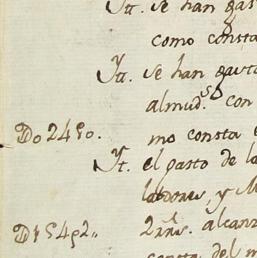 Ytt. Se han gas
como consta
Ytt. Se han gasta
almud.s con
Do 2450. mo consta e
Yt. el gasto de la
labores, y M
alcanz
consta del m